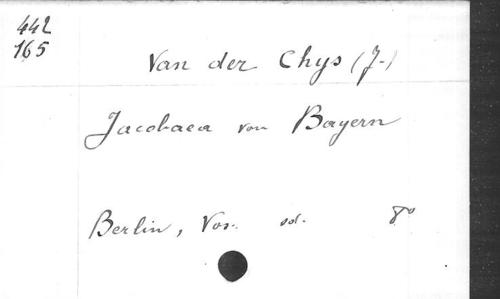 442
165
Van der Chys (J.)
Jacobaea von Bayern
Berlin, Vos. sd. 8°